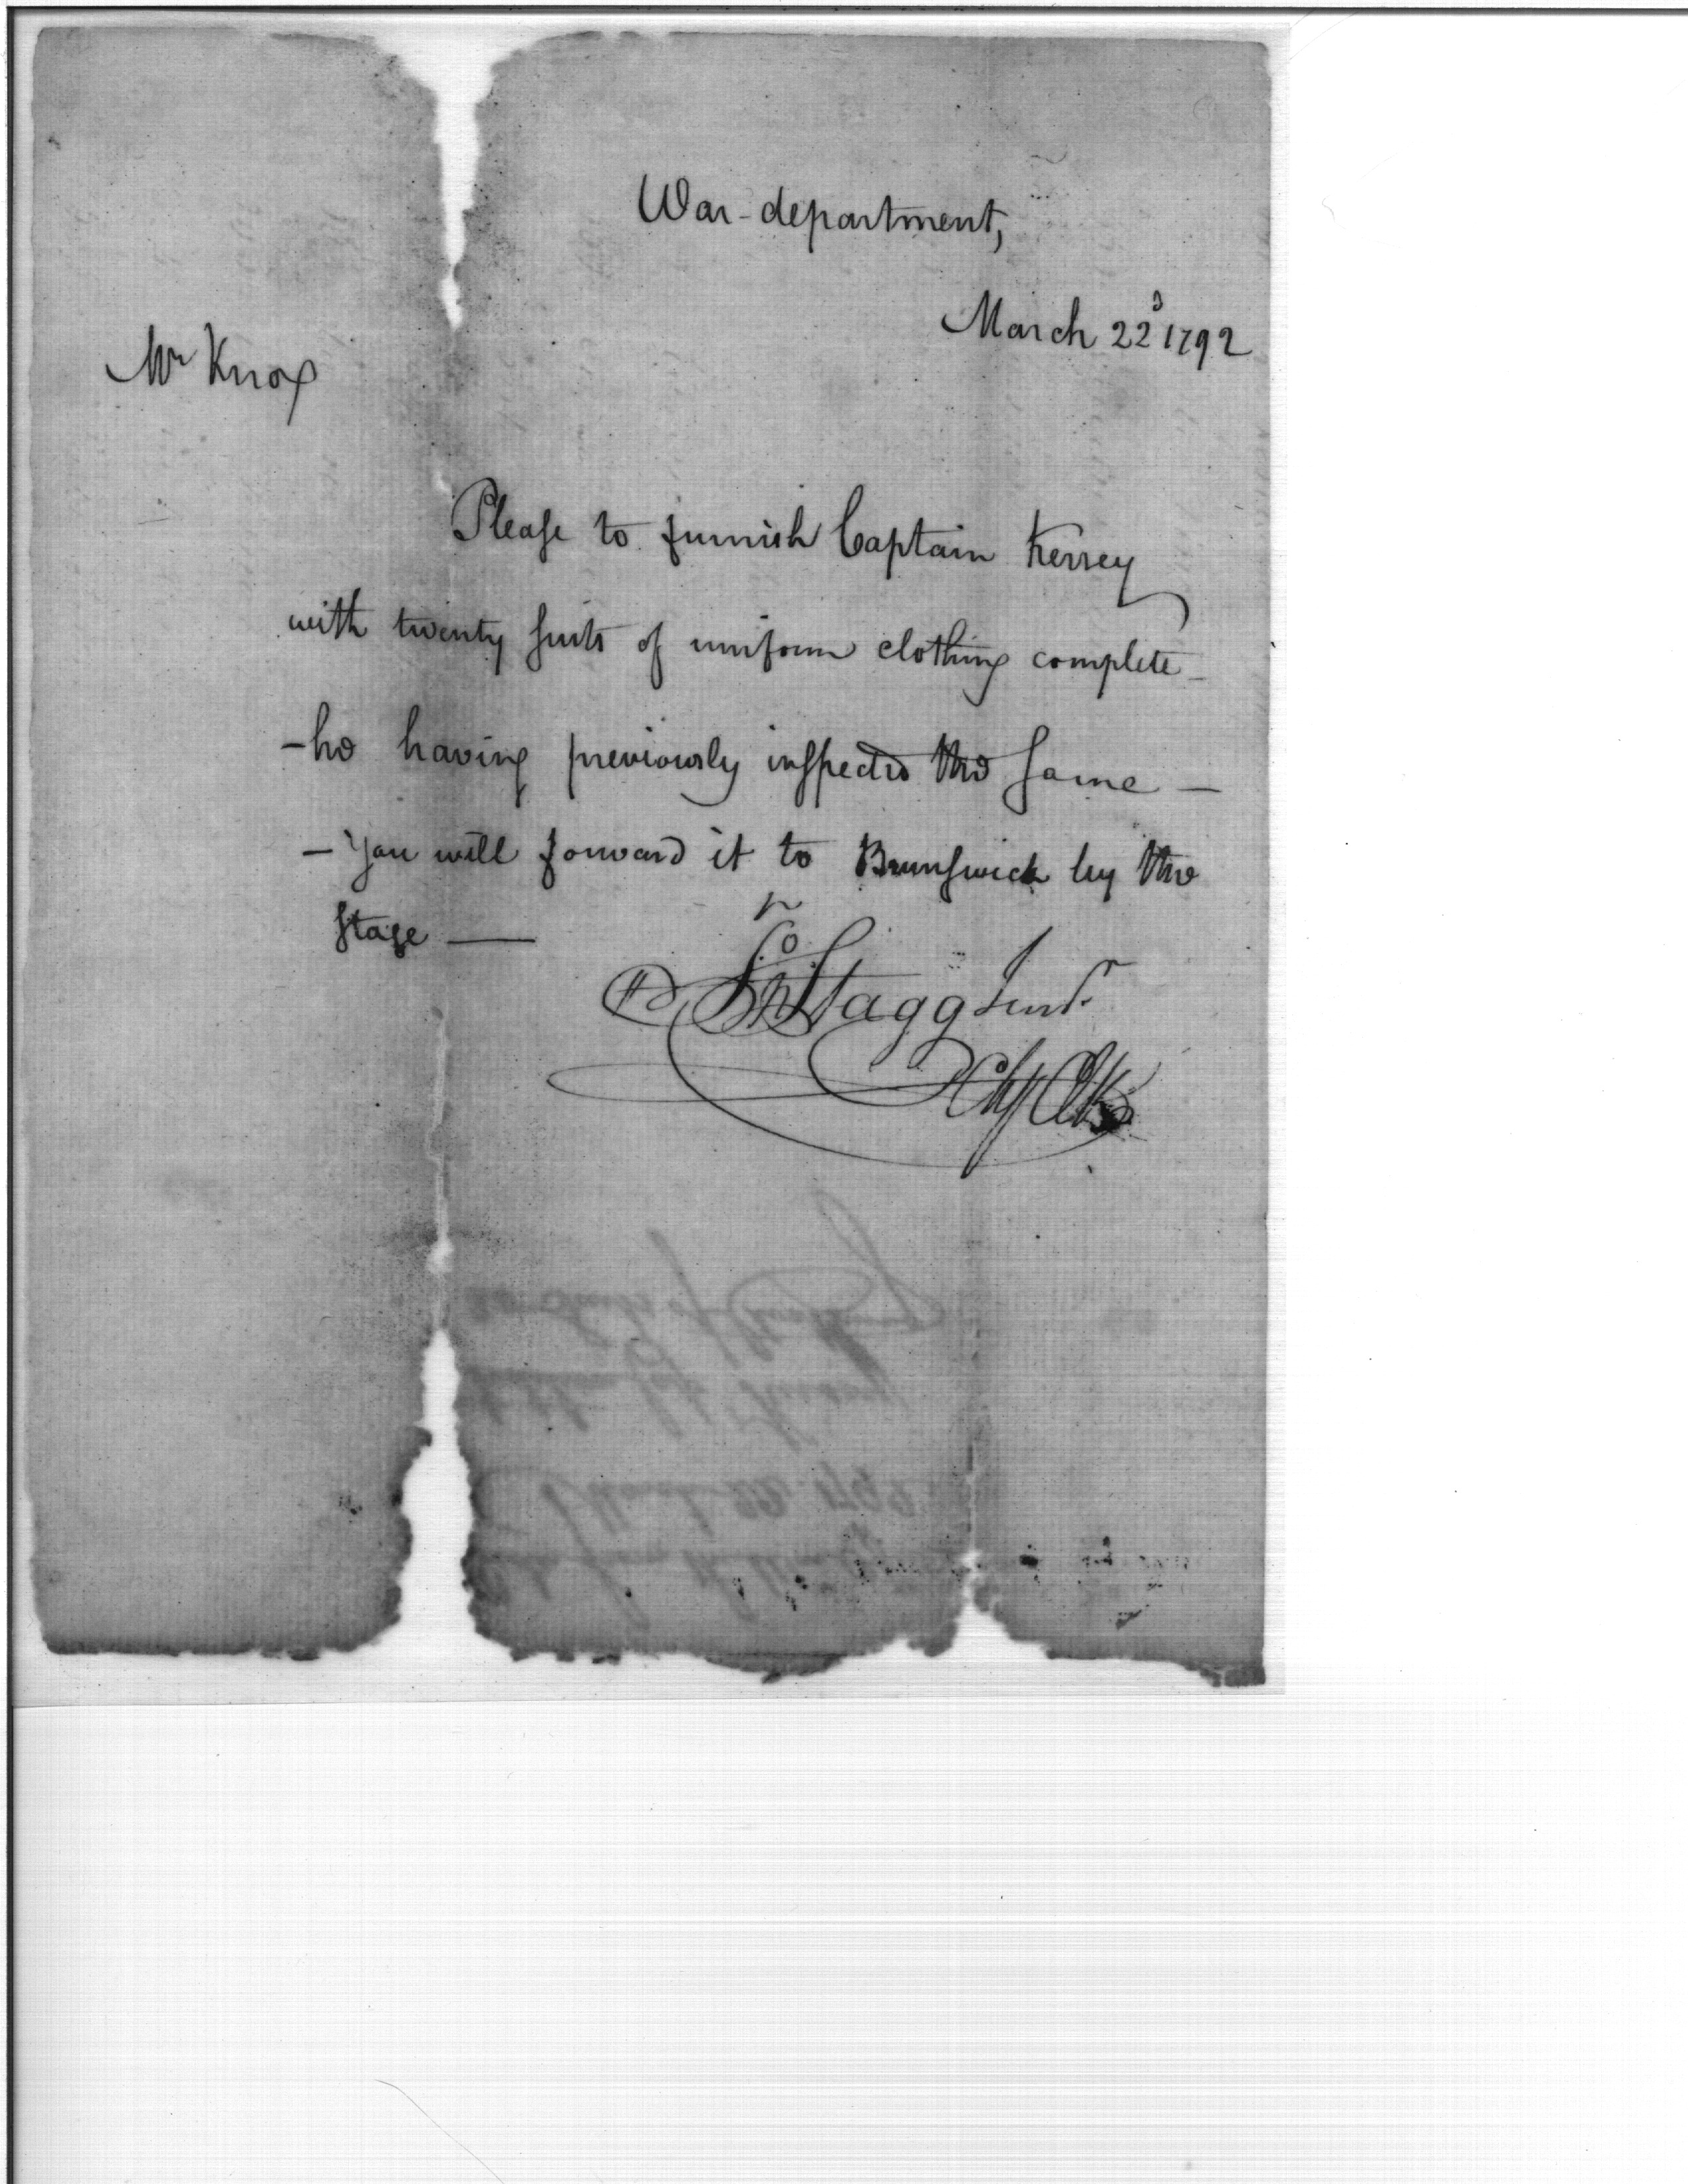 War-department,
March 22d 1792
Mr Knox
Please to furnish Captain Kersey
with twenty suits of uniform clothing complete-
-he having previously inspected the same -
- You will forward it to Brunswick by the
stage —
Jno Stagg Junr.
Chf Clk